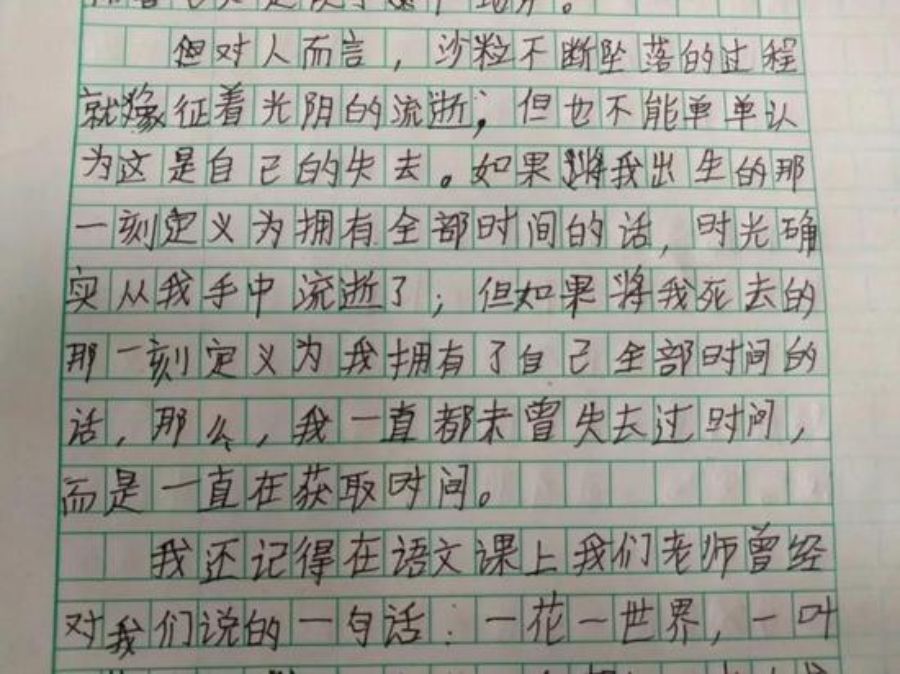 但对人而言，沙粒不断坠落的过程
就像征着光阴的流逝，但也不能单单认
为这是自己的失去。如果将我出生的那
一刻定义为拥有全部时间的话，时光确
实从我手中流逝了；但如果将我死去的
那一刻定义为我拥有了自己全部时间的
话，那么，我一直都未曾失去过时间，
而是一直在获取时间。
我还记得在语文课上我们老师曾经
对我们说的一句话：一花一世界，一叶